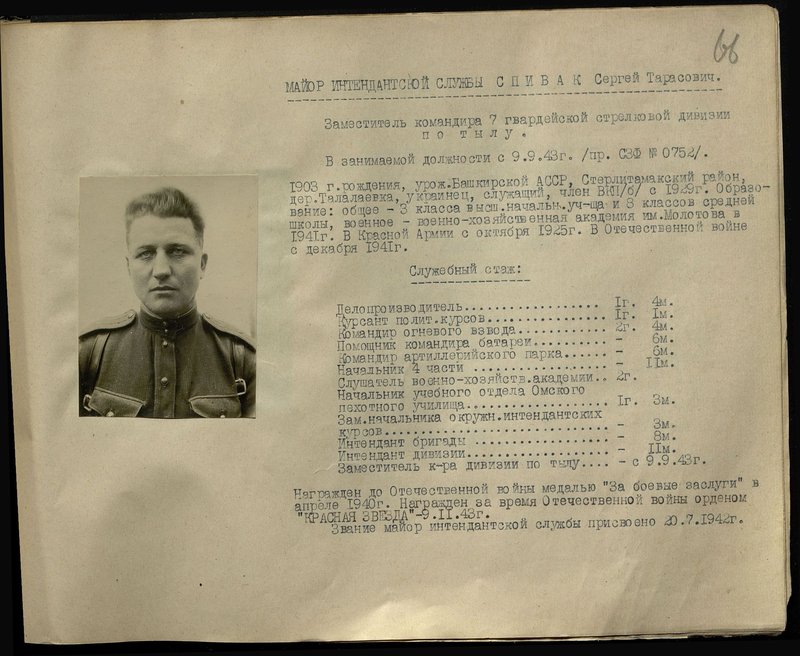 66
МАЙОР ИНТЕНДАНТСКОЙ СЛУЖБЫ С П И В А К Сергей Тарасович.
Заместитель командира 7 гвардейской стрелковой дивизии
п о т ы л у.
В занимаемой должности с 9.9.43г. /пр. СЗФ № 0752/.
1903 г.рождения, урож.Башкирской АССР, Стерлитамакский район,
дер.Талалаевка, украинец, служащий, член ВКП/б/ с 1929г. Образо-
вание: общее - 3 класса высш.начальн.уч-ща и 3 классов средней
школы, военное - военно-хозяйственная академия им.Молотова в
1941г. В Красной Армии с октября 1925г. В Отечественной войне
с декабря 1941г.
Служебный стаж:
Делопроизводитель.................. 1г. 4м.
Курсант полит.курсов................ 1г. 1м.
Командир огневого взвода............ 2г. 4м.
Помощник командира батареи.......... - 6м.
Командир артиллерийского парка...... - 6м.
Начальник 4 части .................. - 11м.
Слушатель военно-хозяйств.академии.. 2г.
Начальник учебного отдела Омского
пехотного училища................... 1г. 3м.
Зам.начальника окружн.интендантских
курсов.............................. - 3м.
Интендант бригады .................. - 8м.
Интендант дивизии................... - 11м.
Заместитель к-ра дивизии по тылу.... - с 9.9.43г.
Награжден до Отечественной войны медалью "За боевые заслуги" в
апреле 1940г. Награжден за время Отечественной войны орденом
"КРАСНАЯ ЗВЕЗДА"-9.11.43г.
Звание майор интендантской службы присвоено 20.7.1942г.